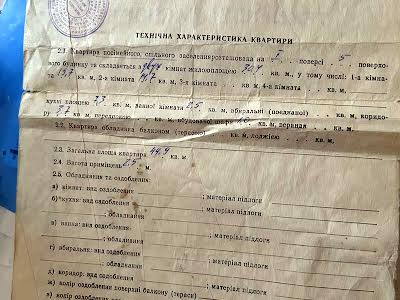 ТЕХНІЧНА ХАРАКТЕРИСТИКА КВАРТИРИ
2.1. Квартира посімейного, спільного заселення розташована на I . . поверсі . 5 . поверхо-
вого будинку та складається з двох кімнат жилою площею 30,4 кв. м, у тому числі: 1-а кімна-
та 15,7 кв. м, 2-а кімната 14,7 кв. м, 3-я кімната . . кв. м, 4-а кімната . . кв. м,
кухні площею 7,3 кв. м, ванної кімнати 2,5 кв. м, вбиральні (поєднаної) . . кв. м, коридо-
ру 3,7 кв. м, передпокою . . кв. м, вбудованої шафи кв. м, веранда . . кв. м.
2.2. Квартира обладнана балконом (терасою) . . кв. м, лоджією . . кв. м.
2.3. Загальна площа квартири 44,9 кв. м.
2.4. Висота приміщень 2,5 м.
2.5. Обладнання та оздоблення:
а) кімнат: вид оздоблення ; матеріал підлоги
б) кухні: вид оздоблення ; матеріал підлоги
; обладнання
в) ванна: вид оздоблення ; матеріал підлоги
; обладнання
г) вбиральня: вид оздоблення ; матеріал підлоги
; обладнання
д) коридор: вид оздоблення ; матеріал підлоги
колір оздоблення поверхні балкону (тераси)
колір оздоблення